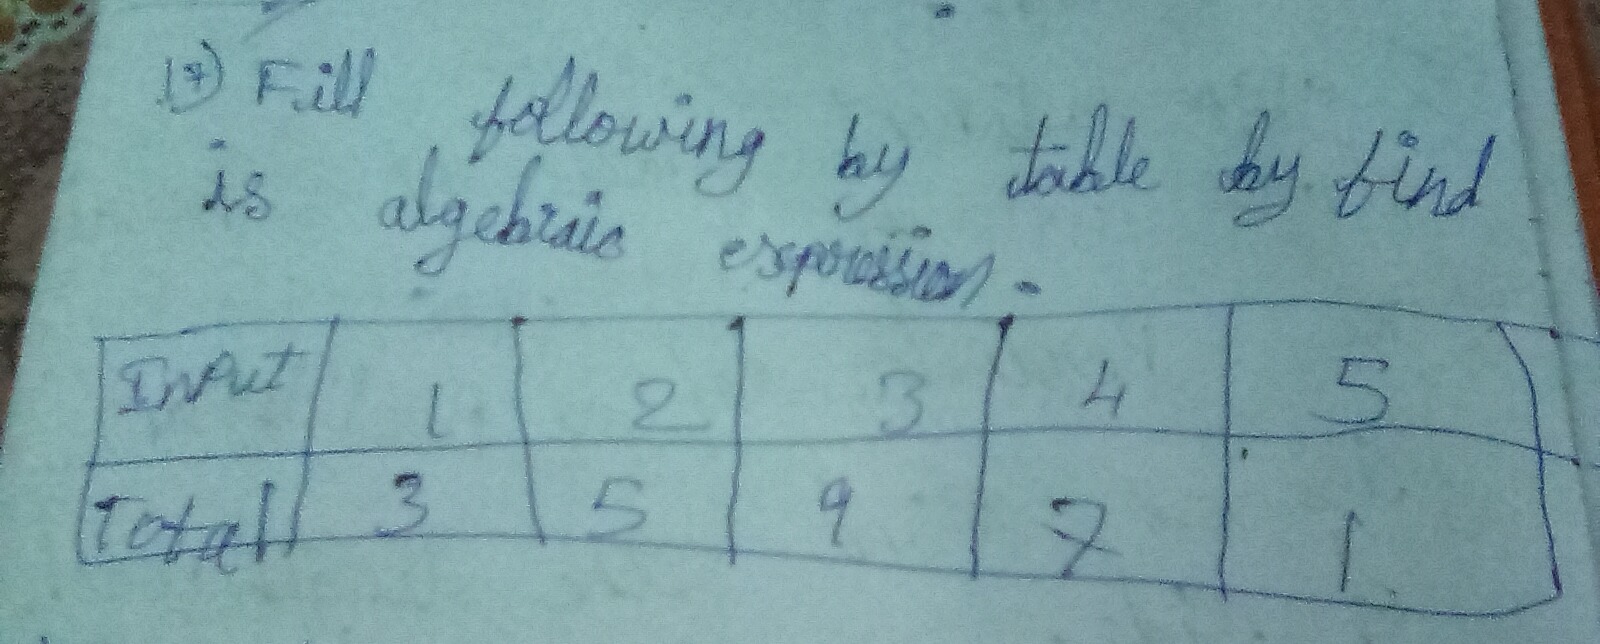 17) Fill following by table by find
is algebraic expression.
Input 1 2 3 4 5
Total 3 5 9 7 1